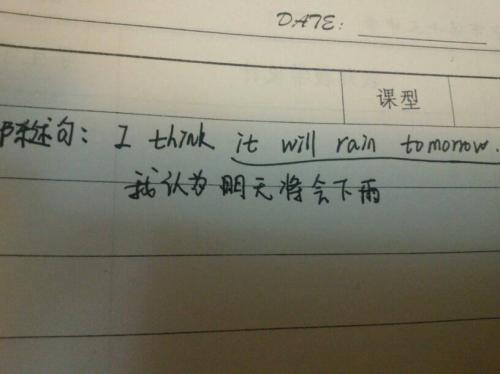 DATE:
课型
陈述句: I think it will rain tomorrow.
我认为明天将会下雨